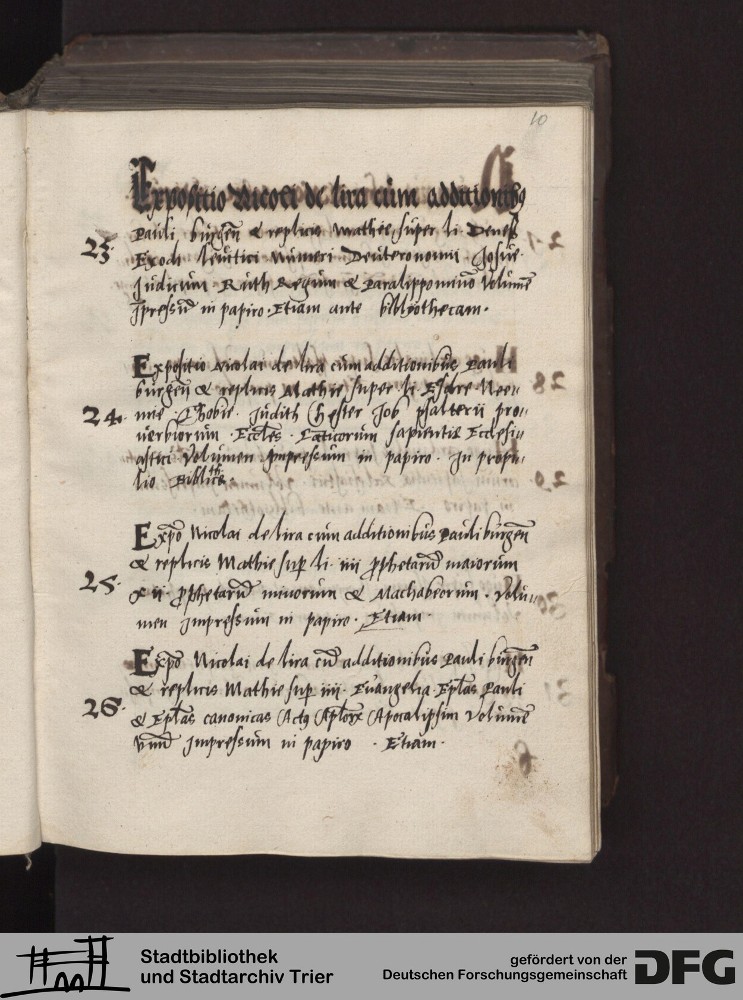 10
Expositio Nicolai de lira cum additionibus
23. Pauli burgen & replicis Mathie super li. Genes
Exodi leuitici Numeri Deuteronomii Josue
Judicum Ruth Regum & Paralippominon Volume
Jpressu in papiro. Etiam ante bibliothecam.
Expositio Nicolai de lira cum additionibus Pauli
burgen & replicis Mathie super li Esdre Nee=
24. mie Thobie. Judith Hester Job psalterii pro=
uerbiorum. Eccles. Canticorum sapientie Ecclesi=
astici Volumen Jmpressum in papiro. In
lio
Expo Nicolai de lira cum additionibus Pauli burgen
& replicis Mathie sup li. iiii prophetaru maiorum
25. xii prophetaru minorum & Machabeorum. Volu=
men Jmpressum in papiro. Etiam.
Expo Nicolai de lira cu additionibus Pauli burgen
& replicis Mathie sup iiii. Euangelia. Eplas Pauli
26. & Eplas canonicas Actus Aplorum Apocalipsim Volume
vnu Jmpressum in papiro. Etiam.
Stadtbibliothek
und Stadtarchiv Trier
gefördert von der
Deutschen Forschungsgemeinschaft
DFG